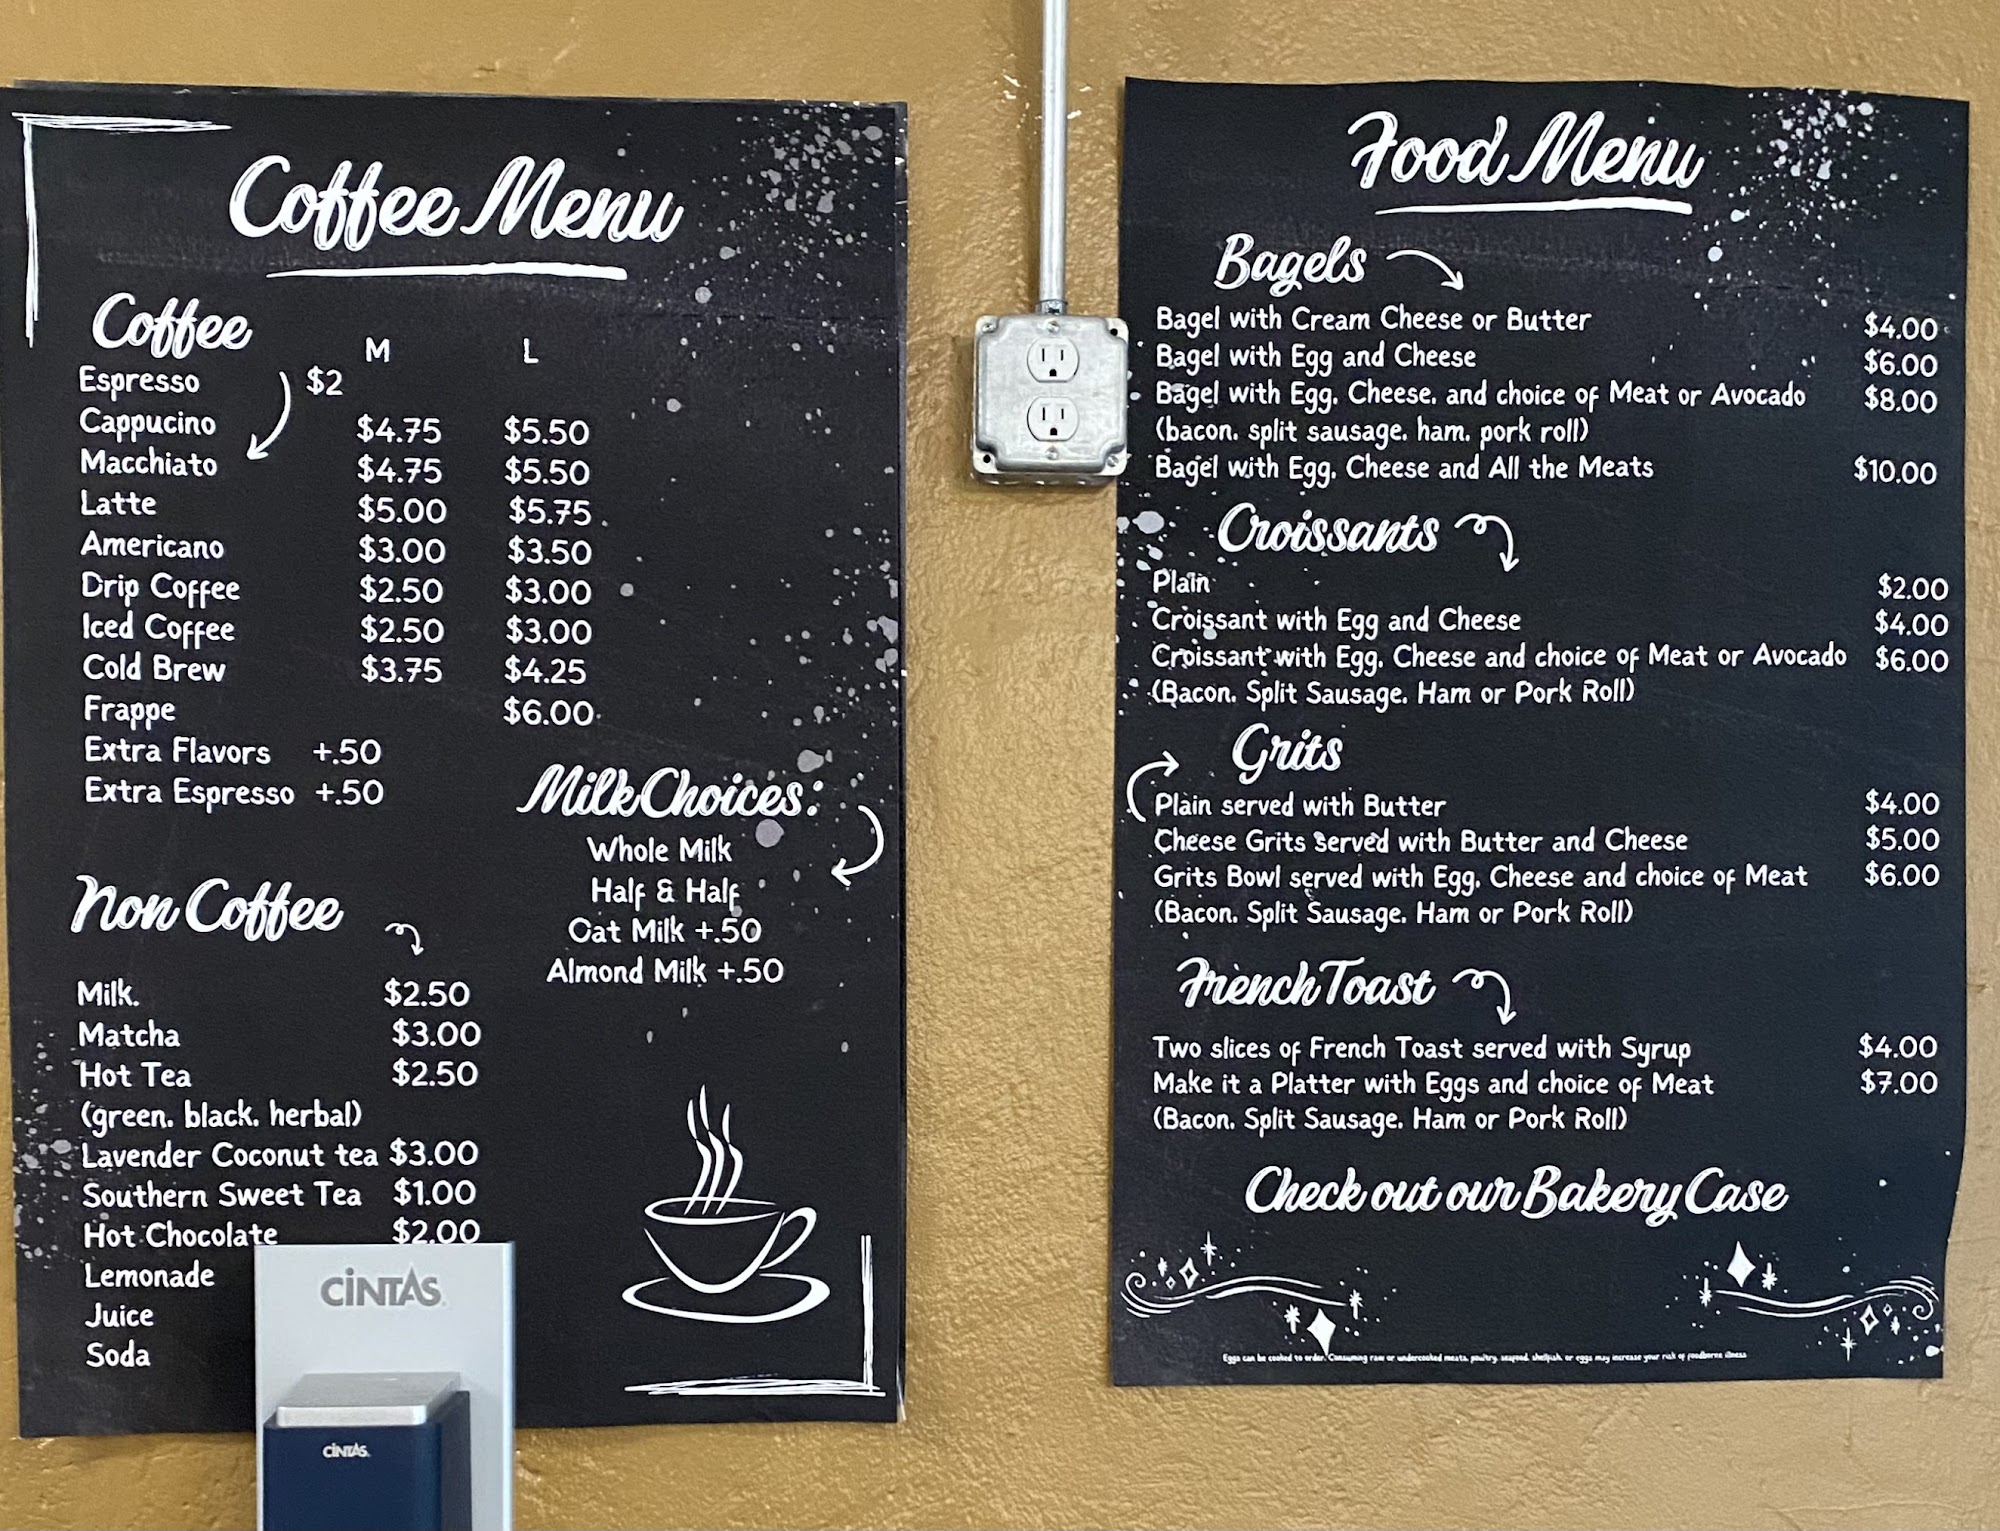 Coffee Menu
Coffee
M L
Espresso $2
Cappucino $4.75 $5.50
Macchiato $4.75 $5.50
Latte $5.00 $5.75
Americano $3.00 $3.50
Drip Coffee $2.50 $3.00
Iced Coffee $2.50 $3.00
Cold Brew $3.75 $4.25
Frappe $6.00
Extra Flavors +.50
Extra Espresso +.50
Milk Choices:
Whole Milk
Half & Half
Oat Milk +.50
Almond Milk +.50
Non Coffee
Milk. $2.50
Matcha $3.00
Hot Tea $2.50
(green, black, herbal)
Lavender Coconut tea $3.00
Southern Sweet Tea $1.00
Hot Chocolate $2.00
Lemonade
Juice
Soda
CINTAS
CINTAS
Food Menu
Bagels
Bagel with Cream Cheese or Butter $4.00
Bagel with Egg and Cheese $6.00
Bagel with Egg, Cheese, and choice of Meat or Avocado $8.00
(bacon, split sausage, ham, pork roll)
Bagel with Egg, Cheese and All the Meats $10.00
Croissants
Plain $2.00
Croissant with Egg and Cheese $4.00
Croissant with Egg, Cheese and choice of Meat or Avocado $6.00
(Bacon, Split Sausage, Ham or Pork Roll)
Grits
Plain served with Butter $4.00
Cheese Grits served with Butter and Cheese $5.00
Grits Bowl served with Egg, Cheese and choice of Meat $6.00
(Bacon, Split Sausage, Ham or Pork Roll)
French Toast
Two slices of French Toast served with Syrup $4.00
Make it a Platter with Eggs and choice of Meat $7.00
(Bacon, Split Sausage, Ham or Pork Roll)
Check out our Bakery Case
Eggs can be cooked to order. Consuming raw or undercooked meats, poultry, seafood, shellfish, or eggs may increase your risk of foodborne illness